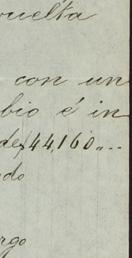 vuelta
con un
bio é in
de $44,160....
do
rgo